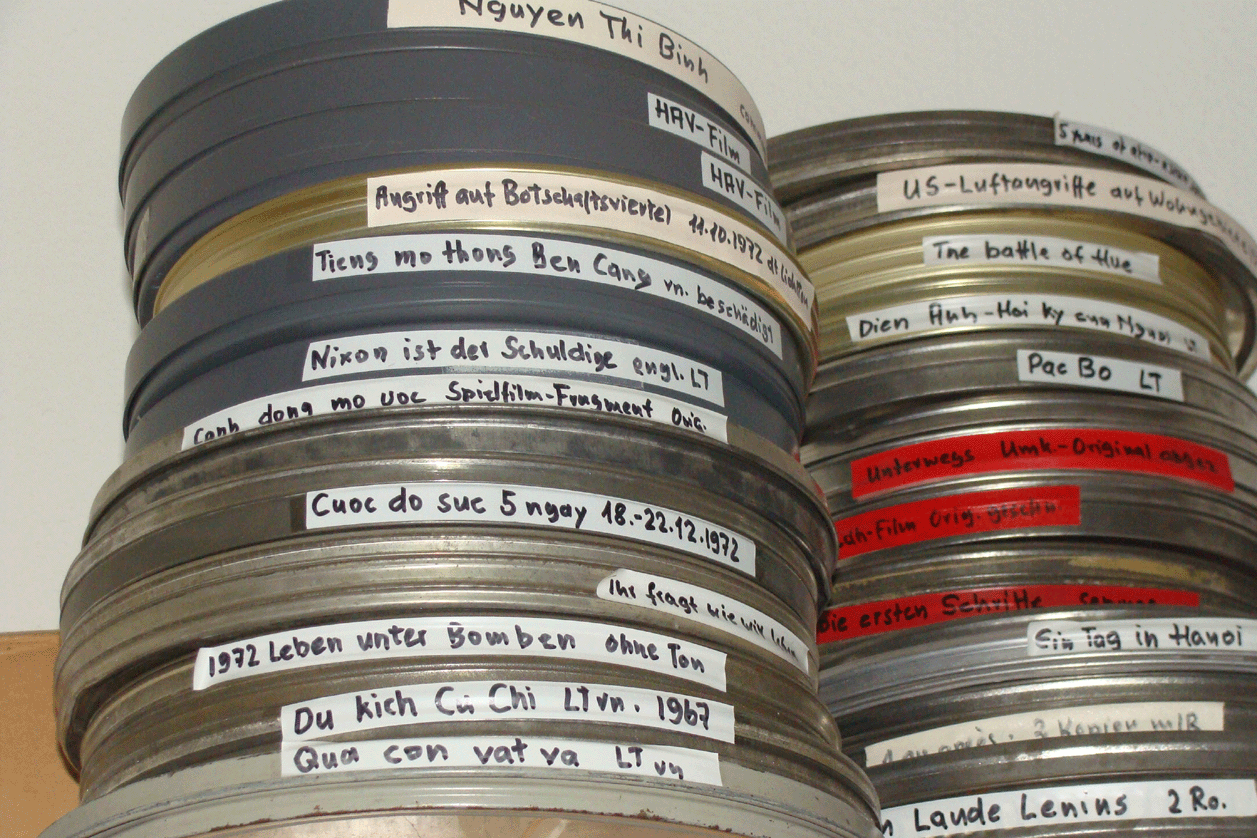 Nguyen Thi Binh
HAV-Film
HAV-Film
Angriff auf Botschaftsviertel 11.10.1972
Tieng mo thong Ben Cang vn. beschädigt
Nixon ist der Schuldige engl. LT
Canh dong mo uoc Spielfilm-Fragment Orig.
Cuoc do suc 5 ngay 18.-22.12.1972
Ihr fragt wie wir leben
1972 Leben unter Bomben ohne Ton
Du kich Cu Chi LT vn. 1967
Qua con vat va LT vn
5 years of
US-Luftangriffe auf
The battle of Hue
Dien Anh-Hoi ky cua Nguoi LT
Pac Bo LT
Unterwegs Umk-Original
-Film Orig.
Die ersten Schritte
Ein Tag in Hanoi
3 Kopien
Lande Lenins 2 Ro.